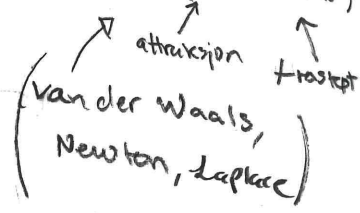 attraksjon
trastept
(van der Waals,
Newton, Laplace)